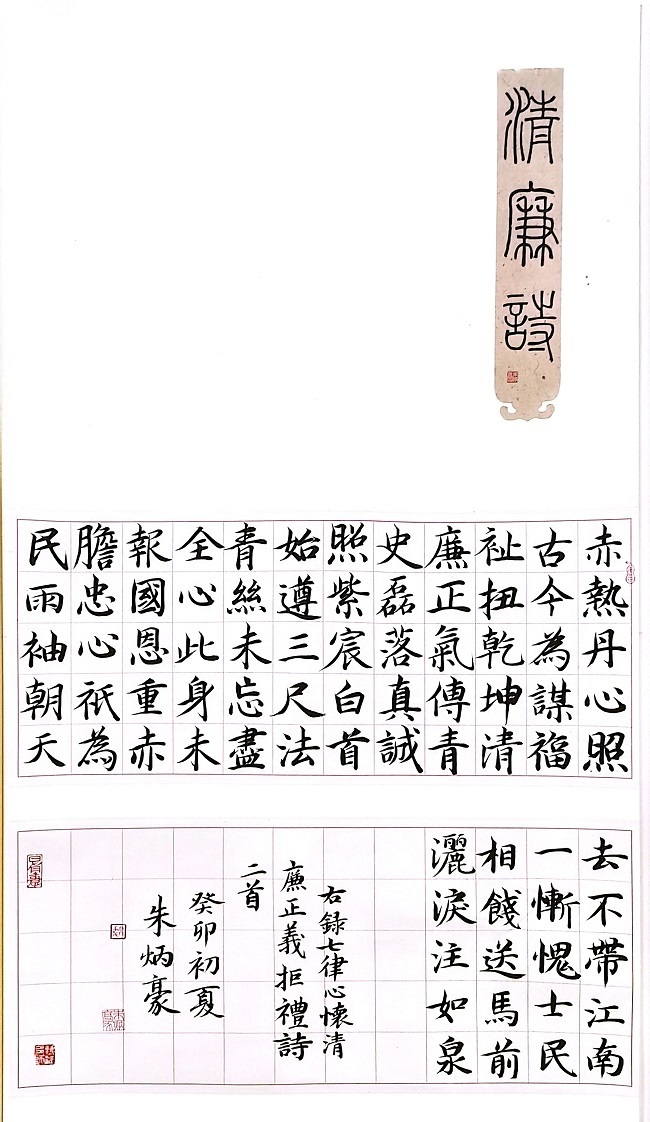 清廉詩
赤熱丹心照
古今為謀福
祉扭乾坤清
廉正氣傳青
史磊落真誠
照紫宸白首
始遵三尺法
青絲未忘盡
全心此身未
報國恩重赤
膽忠心祇為
民雨袖朝天
去不帶江南
一慚愧士民
相餞送馬前
灑淚注如泉
右錄七律心懷清
廉正義拒禮詩
二首
癸卯初夏
朱炳豪